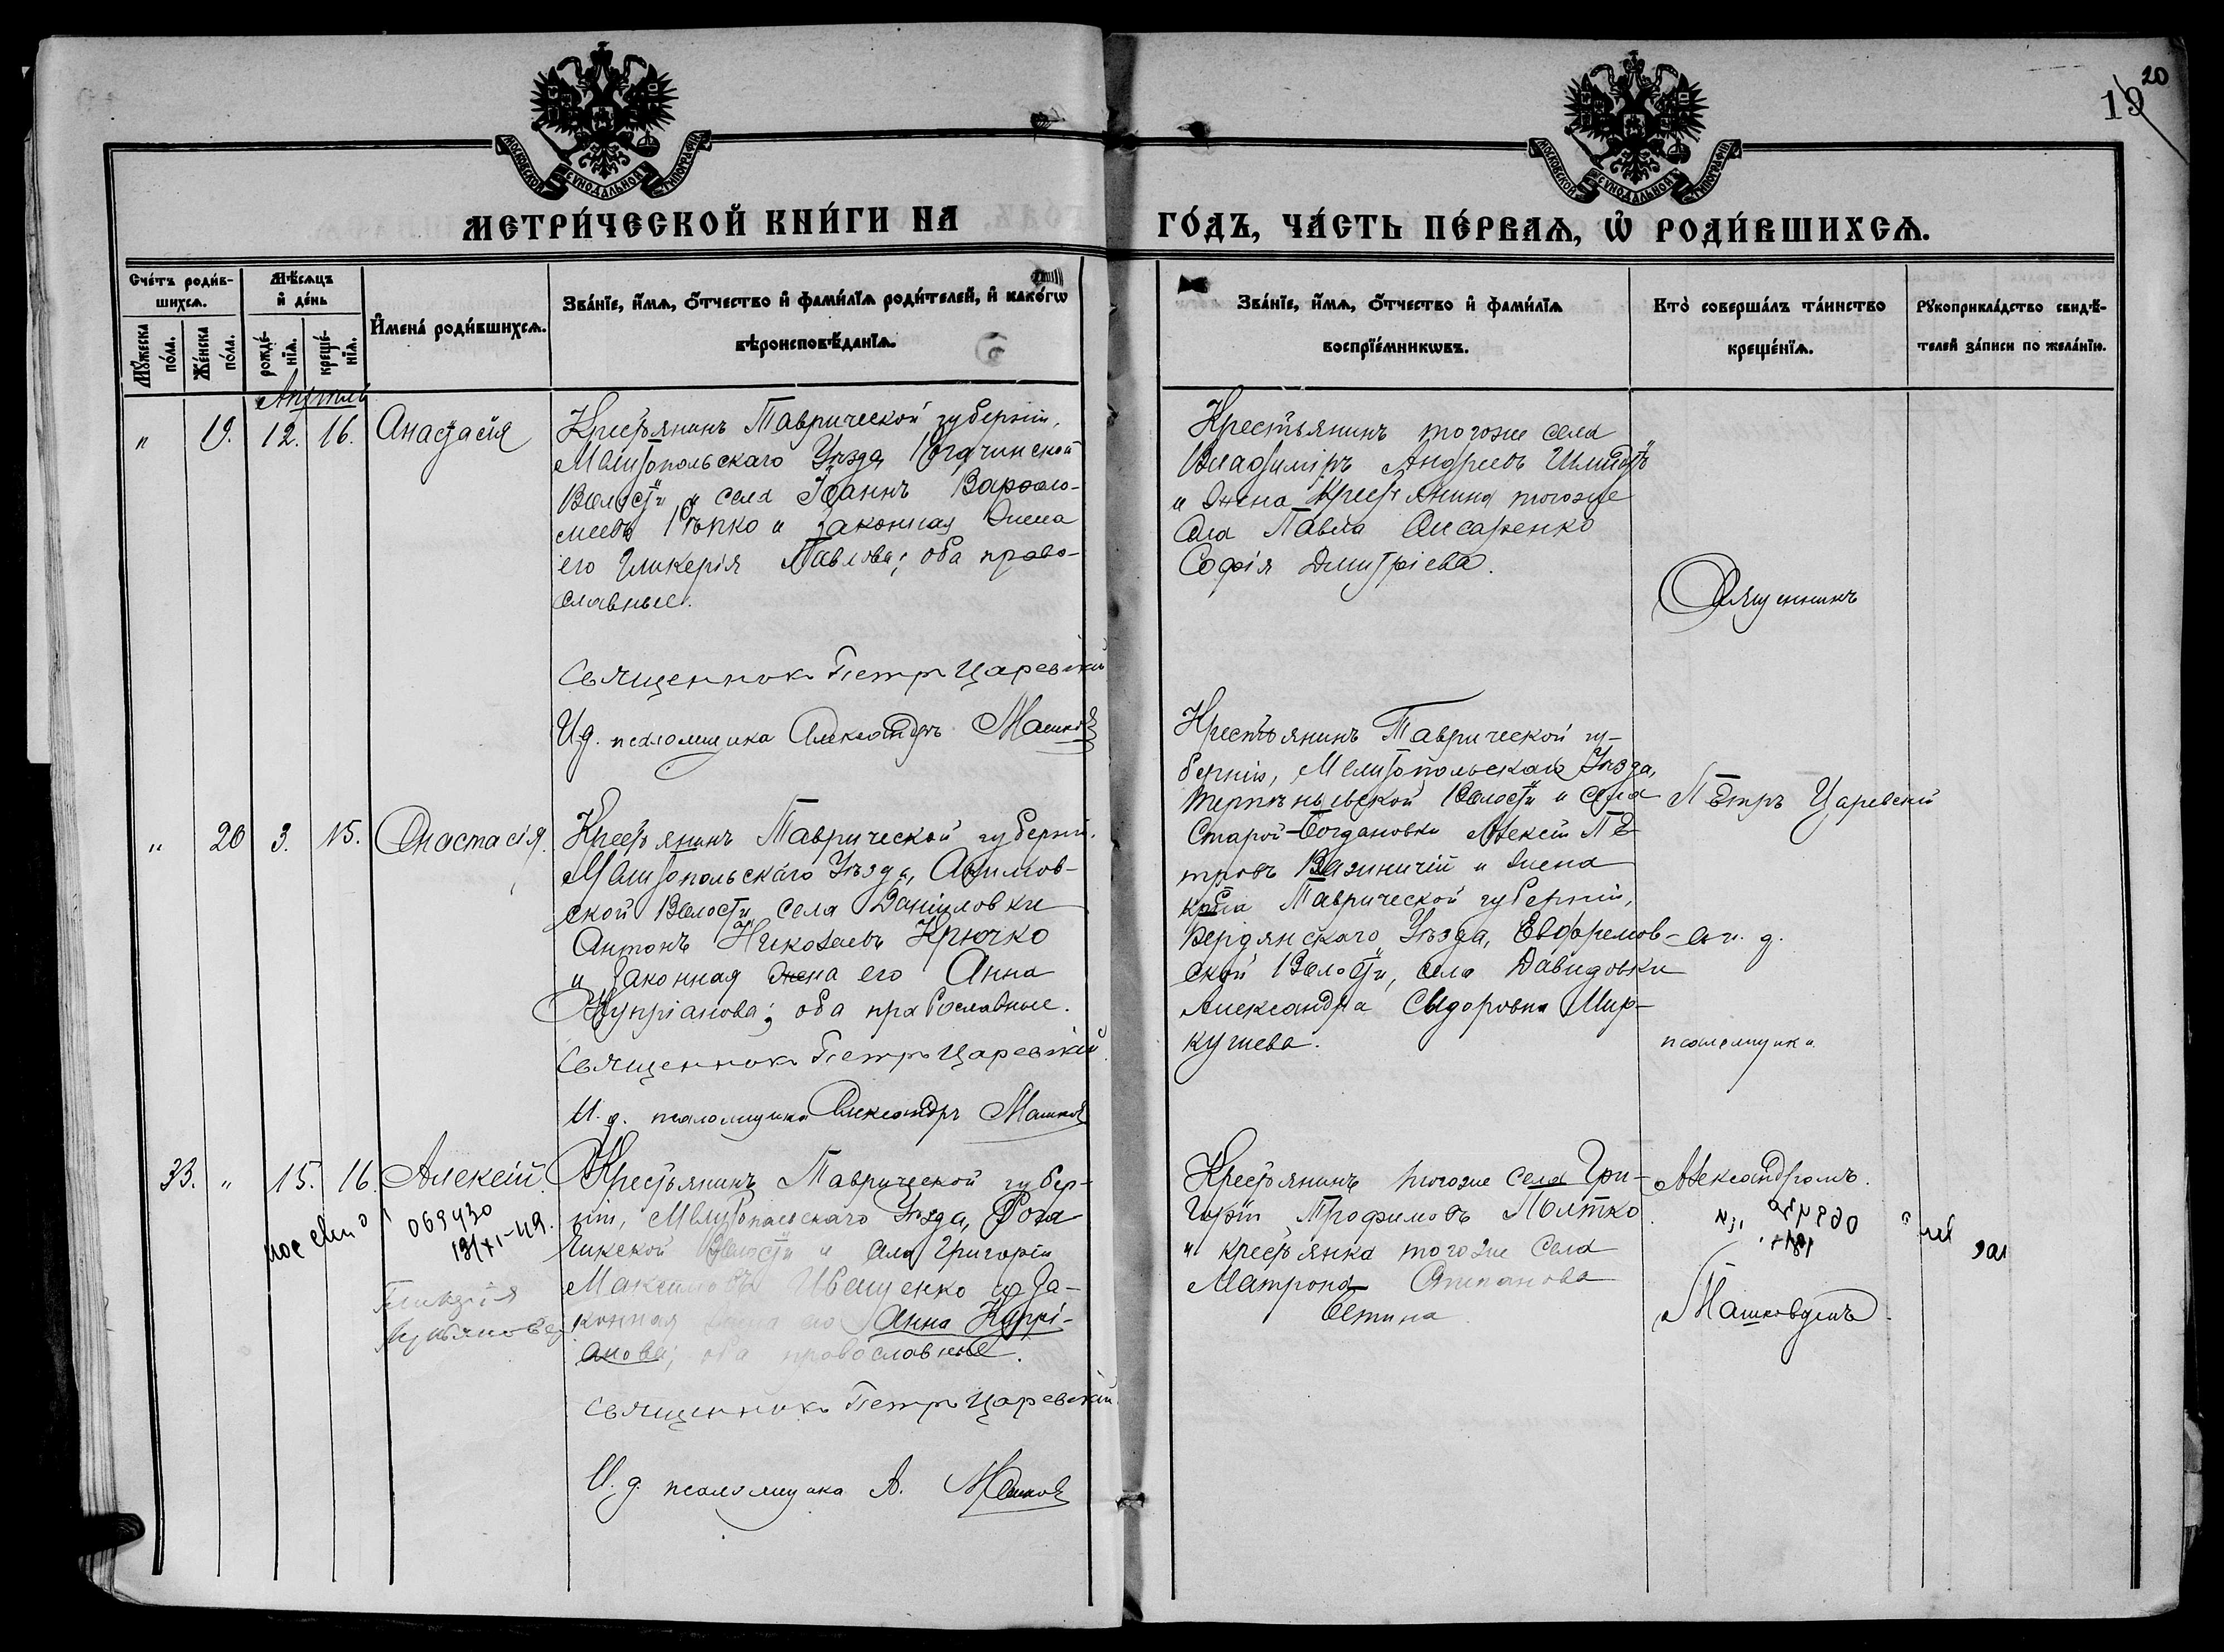 20
19
МОСКОВСКОЙ СѴНОДАЛЬНОЙ ТИПОГРАФІИ
МОСКОВСКОЙ СѴНОДАЛЬНОЙ ТИПОГРАФІИ
МЕТРИ́ЧЕСКОЙ КНИ́ГИ НА
ГО́ДЪ, ЧА́СТЬ ПЕ́РВАѦ, Ѡ҆ РОДИ́ВШИХСѦ.
Сче́тъ роди́в-
шихсѧ.
Мꙋ́жеска по́ла.
Же́нска по́ла.
Мѣ́сѧцъ
и҆ де́нь
рожде́-
нїѧ.
креще́-
нїѧ.
И҆мена̀ роди́вшихсѧ.
Зва́нїе, и҆́мѧ, ѻ҆́тчество и҆ фами́лїѧ роди́телей, и҆ како́гѡ
вѣроисповѣ́данїѧ.
Зва́нїе, и҆́мѧ, ѻ҆́тчество и҆ фами́лїѧ
воспрїе́мникѡвъ.
Кто̀ соверша́лъ та́инство
креще́нїѧ.
Рꙋкоприкла́дство свидѣ́-
телей за́писи по жела́нїю.
Апрѣль
" 19. 12. 16. Анастасія
Крестьянинъ Таврической губерніи,
Мелитопольскаго Уѣзда, Рогачинской
Волости и села Іоаннъ Варѳоло-
меевъ Рѣпко и законная жена
его Гликерія Павлова; оба право-
славные.
Священникъ Петръ Царевскій
И.д. псаломщика Александръ Машковъ
Крестьянинъ тогоже села
Владиміръ Андреевъ Шмидтъ
и жена Крестьянина тогоже
села Павла Писаренко
Софія Димитріева.
Священникъ
" 20 3. 15. Анастасія.
Крестьянинъ Таврической губерніи.
Мелитопольскаго Уѣзда, Акимов-
ской Волости села Даниловки
Антонъ Николаевъ Крючко
и законная жена его Анна
Купріанова; оба православные.
Священникъ Петръ Царевскій
И. д. псаломщика Александръ Машковъ
Крестьянинъ Таврической гу-
берніи, Мелитопольскаго Уѣзда,
Терпѣньевской Волости и села
Старой-Богдановки Алексій Пе-
тровъ и жена
Таврической губерніи,
Бердянскаго Уѣзда,
ской Волости, села Давидовки
Александра Сидоровна Мир-
кушева.
Петръ Царевскій
съ и. д.
псаломщика
33. " 15. 16. Алексій.
069430
13/XI-49.
Крестьянинъ Таврической губер-
ніи, Мелитопольскаго Уѣзда, Рога-
чинской Волости и села Григорій
Максимовъ Иващенко и за-
конная жена его Анна Купрі-
анова; оба православные.
Священникъ Петръ Царевскій
И. д. псаломщика А. Машковъ
Крестьянинъ тогоже села Гри-
горій Трофимовъ Полтко
и крестьянка тогоже села
Матрона Степанова
Александромъ
Машковымъ.